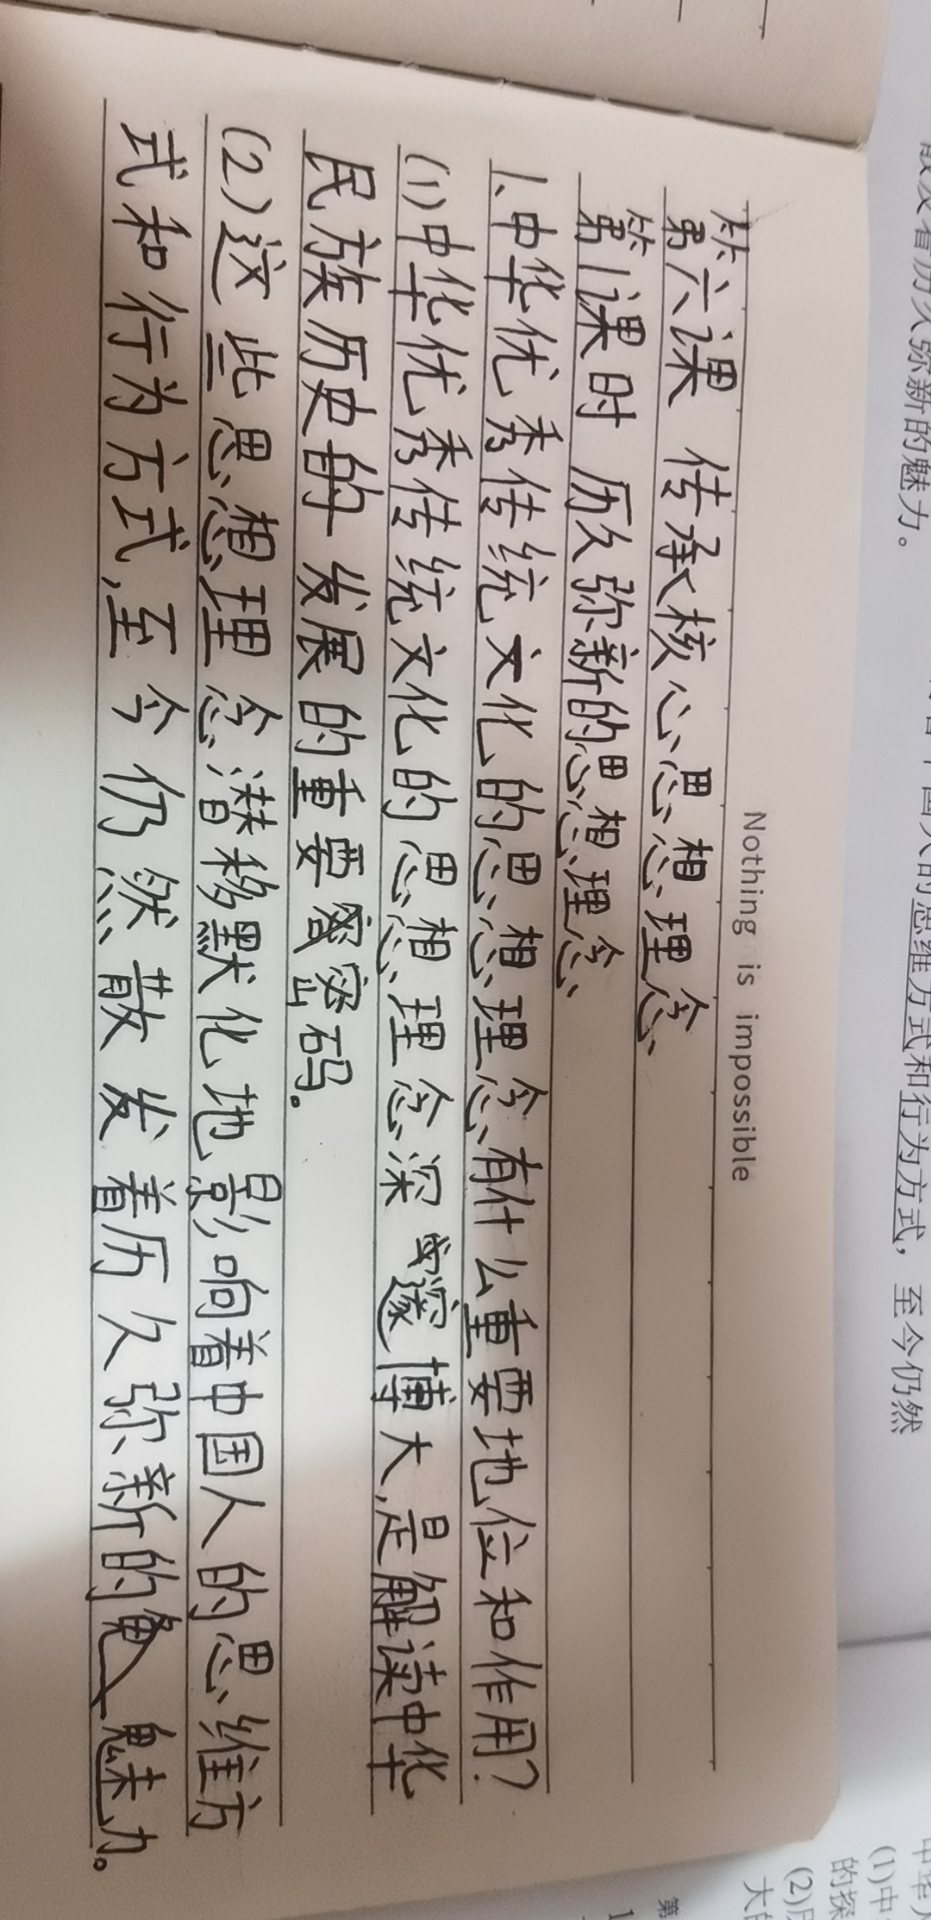 Nothing is impossible
第六课 传承核心思想理念
第1课时 历久弥新的思想理念
1、中华优秀传统文化的思想理念有什么重要地位和作用?
(1)中华优秀传统文化的思想理念深邃博大,是解读中华
民族历史的发展的重要密码。
(2)这些思想理念潜移默化地影响着中国人的思维方
式和行为方式,至今仍然散发着历久弥新的魅力。
散发着历久弥新的魅力。
中国人的思维方式和行为方式,至今仍然
(1)中
的探
(2)
大的
第
1